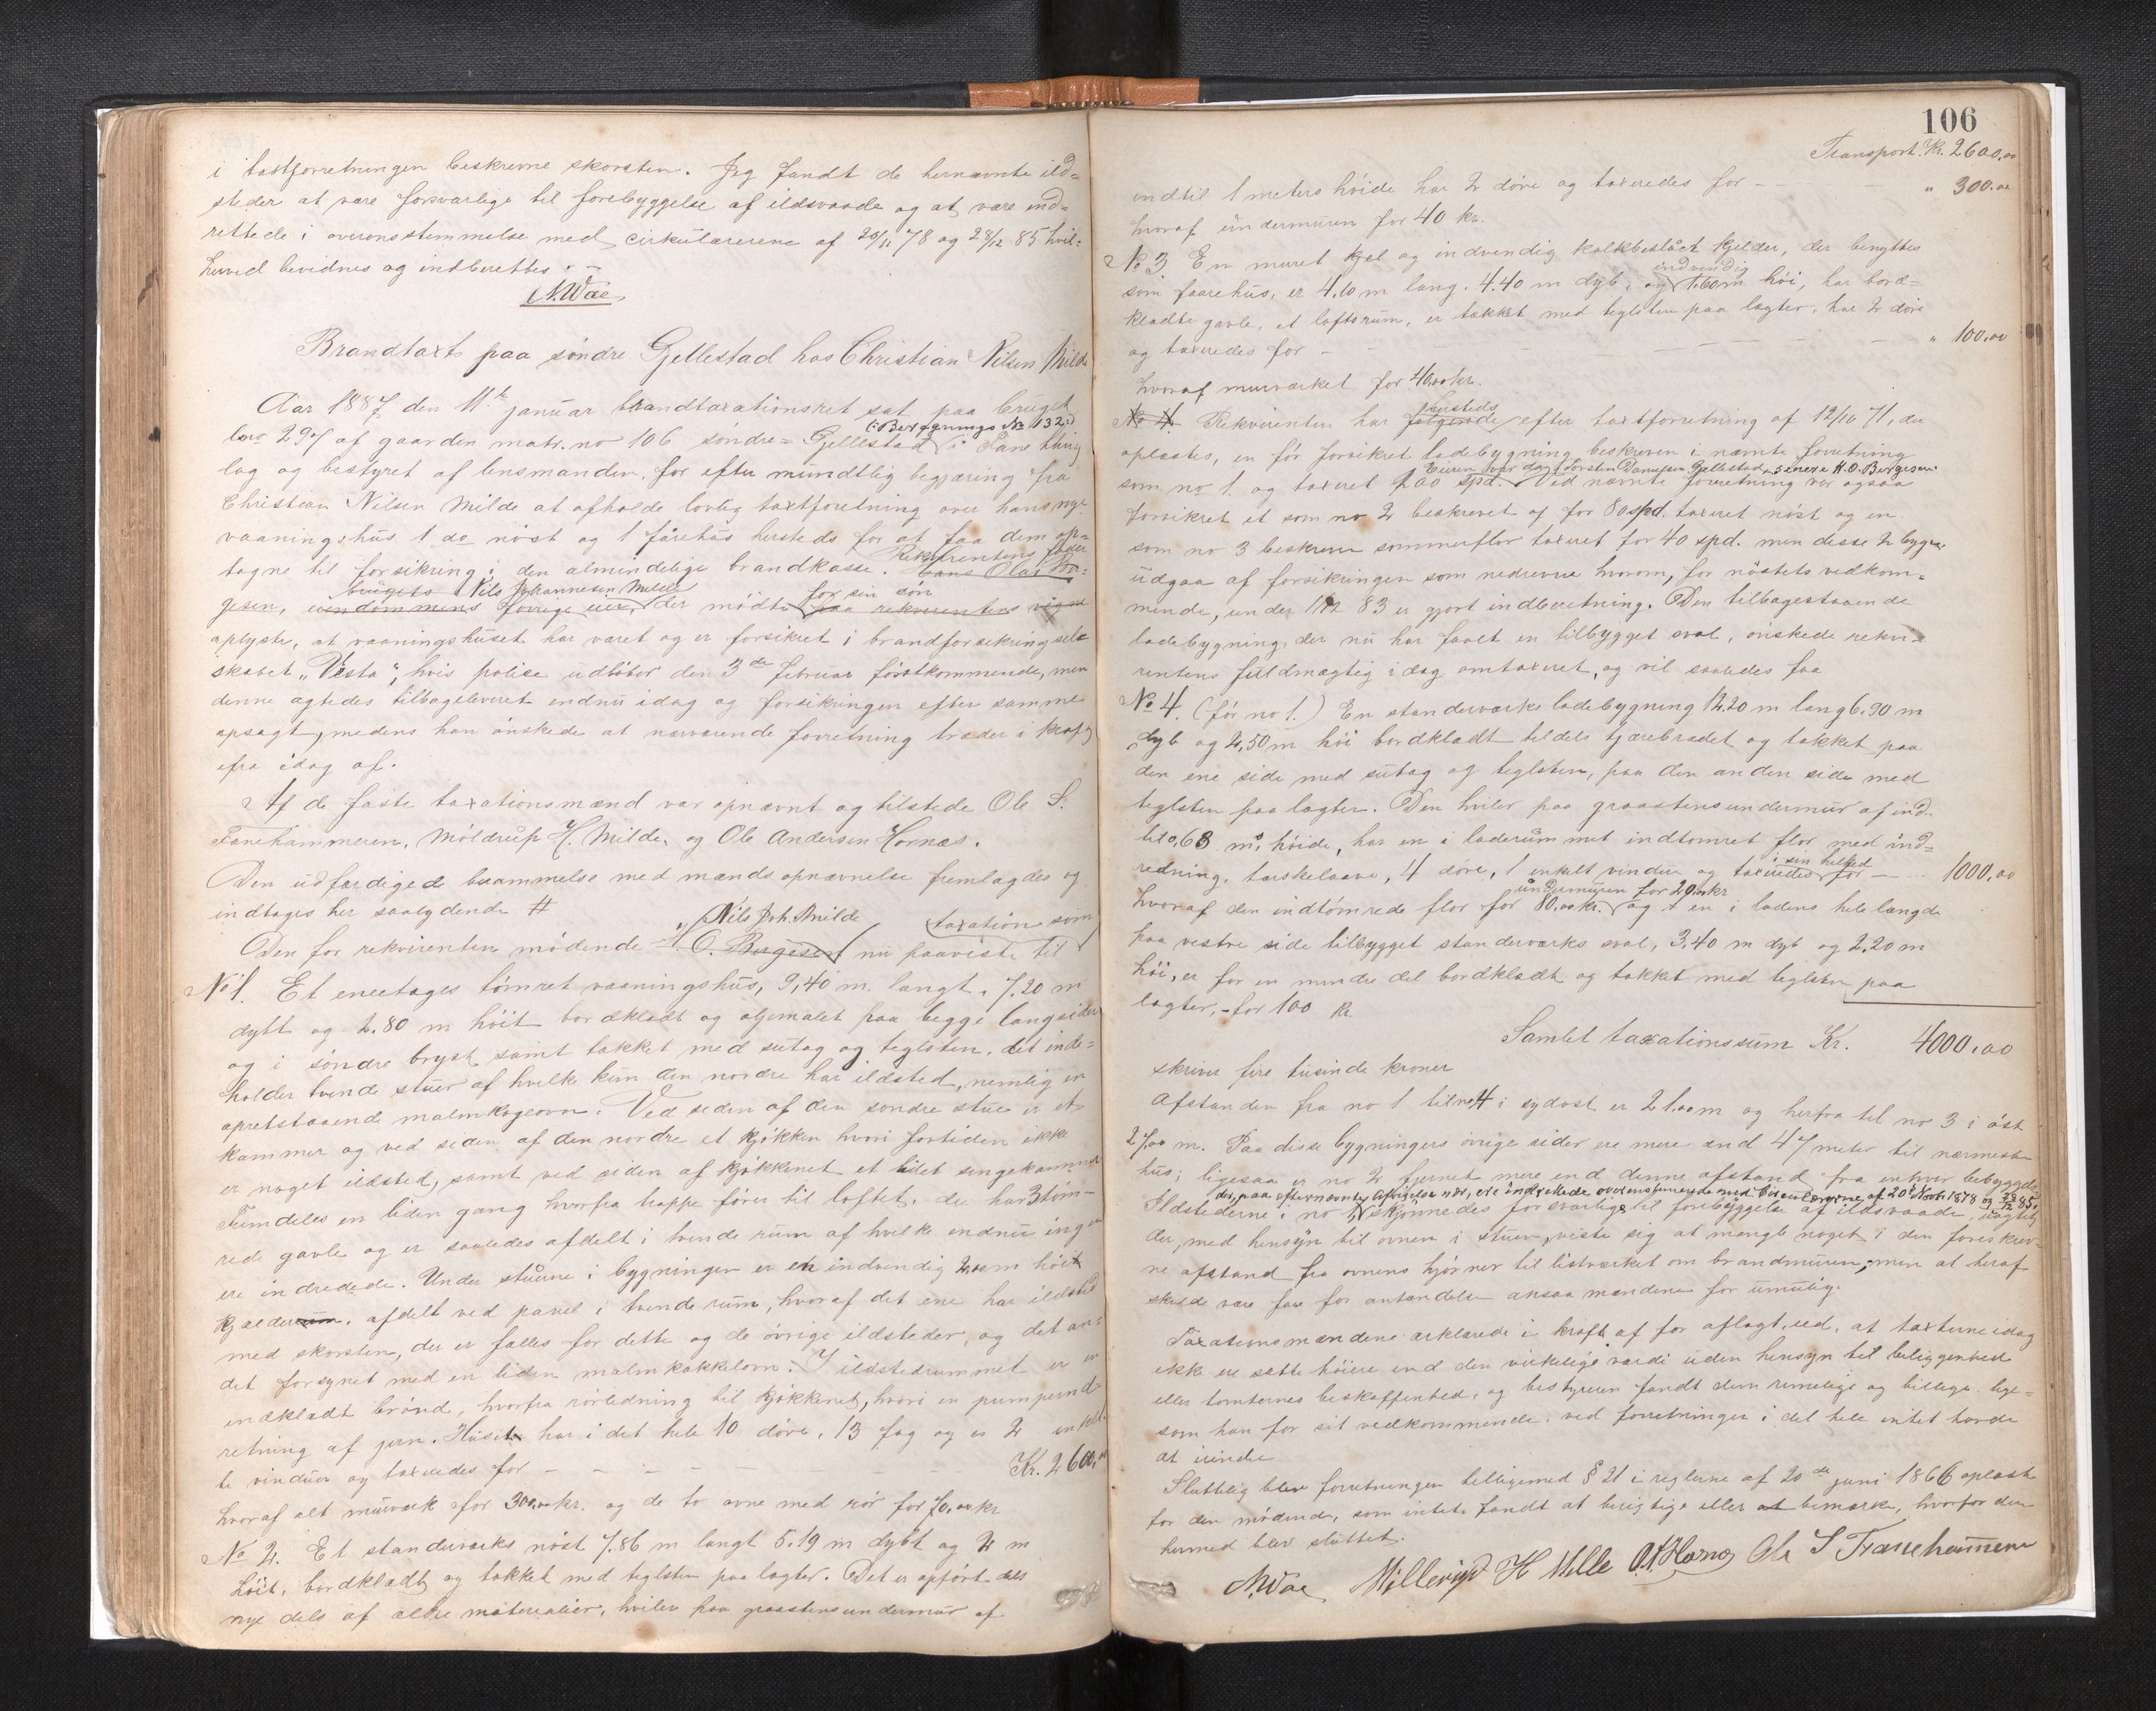 i taxtforretningen beskrevne skorsten. Jeg fandt de hernævnte ild-
steder at være forsvarlige til forebyggelse af ildsvaade og at være ind-
rettede i overensstemmelse med cirkulærerene af 20/11 78 og 28/12 85 hvil-
herved bevidnes og indberettes. -
N. Wae
Brandtaxt paa søndre Gjellestad hos Christian Nilsen Milde
Aar 1887 den 11te januar brandtaxationsret sat paa bruget
(: Bergegnings No 132:)
løno 297 af gaarden matr. no 106 søndre Gjellestad i Fane thing
lag og bestyret af lensmanden, for efter mundtlig begjæring fra
Christian Nilsen Milde at afholde lovlig taxtforetning over hans nye
vaaningshus 1 do nøst og 1 fårehus hersteds for at faa dem op-
Rekvirentens fader
tagne til forsikring i den almindelige brandkasse. Hans Olai Bør-
brugets Nils Johannesen Milde for sin søn
gesen, eiendommens forrige eier der mødte paa rekvirentens vegne
oplyste, at vaaningshuset har været og er forsikret i brandforsekringssel-
skabet "Vesta", hvis police udløber den 3de februar førstkommende, men
denne agtedes tilbageleveret endnu idag og forsikringen efter samme
opsagt, medens han ønskede at nærværende forretning træder i kraft
fra idag af.
Af de faste taxationsmænd var opnævnt og tilstede Ole S.
Fanehammeren, Møldrup H. Milde, og Ole Andersen Hornæs.
Den udfærdigede berammelse med mænds opnævnelse fremlagdes og
indtages her saalydende #
Nils Joh. Milde taxation som
Den for rekvirenten mødende H. O. Børgesen nu paaviste til
No 1. Et eneetages tømret vaaningshus, 9,40 m. langt, 7.20 m
dybt og 2.80 m høit bordklædt og oljemalet paa begge langsider
og i søndre bryst samt takket med sutag og teglsten, det inde-
holder tvende stuer af hvilke kun den nordre har ildsted, nemlig en
opretstaaende malmkogeovn. Ved siden af den søndre stue er et
kammer og ved siden af den nordre et kjøkken hvori fortiden ikke
er noget ildsted, samt ved siden af kjøkkenet et lidet sengekammer
Fremdeles en liden gang hvorfra trappe fører til loftet, der har 3 tøm-
rede gavle og er saaledes afdelt i tvende rum af hvilke endnu ingen
ere indredede. Under stuerne i bygningen er en indvendig 2,00 m høit
kjælderrum, afdelt ved panel i tvende rum, hvoraf det ene har ildsted
med skorsten, der er fælles for dette og de øvrige ildsteder, og det an-
det forsynet med en liden malmkakkelovn. I ildstedrummet er en
indklædt brønd, hvorfra rørledning til kjøkkenet, hvori en pumpeind-
retning af jern. Huset har i det hele 10 døre, 13 fag og er 2 enkel-
te vinduer og taxeredes for - - - - - Kr. 2600,00
hvoraf alt murværk for 300,00 kr. og de to ovne med rør for 70,00 kr
No 2. Et standerværks nøst 7.86 m langt 5.19 m dybt og 2 m
høit, bordklædt og takket med teglsten paa lagter. Det er opført dels
nye dels af ældre materialier, hviler paa graastensundermur af
106
Transport. Kr. 2600,00
indtil 1 meters høide har 2 døre og taxeredes for - - " 300.00
hvoraf undermuren for 40 kr.
No 3 En muret kjel og indvendig kalkbeslået kjelder, der benyttes
indvendig
som faarehus, er 4,10 m lang, 4.40 m dyb, og 1.60 m høi, har bord-
klædte gavle, et loftsrum, er takket med teglsten paa lagter, har 2 døre
og taxeredes for - - - - - " 100.00
hvoraf murværket for 40,00 kr.
hersteds
No 4. Rekvirenten har følgende efter taxtforretning af 12/10 71, der
oplæstes, en før forsikret ladebygning beskreven i nævnte forretning
Eieren var da Torsten Danielsen Gjellestad, senere H. O. Børgesen.
som no 1. og taxeret 200 spd. Ved nævnte forretning var ogsaa
forsikret et som no 2 beskrevet og for 80 spd. taxeret nøst og en
som no 3 beskreven sommerflor taxeret for 40 spd. men disse 2 bygn.
udgaa af forsikringen som nedrevne hvorom, for nøstets vedkom-
mende, under 1/12 83 er gjort indberetning. Den tilbagestaaende
ladebygning, der nu har faaet en tilbygget sval, ønskede rekvi-
rentens fuldmægtig idag omtaxeret, og vil saaledes faa
No 4. (før no 1.) En standerværks ladebygning 14.20 m lang 6.90 m
dyb og 2,50 m høi bordklædt tildels tjærebredet og takket paa
den ene side med sutag og teglsten, paa den anden side med
teglsten paa lagter. Den hviler paa graastensundermur af ind-
til 0,63 m. høide, har en i laderummet indtømret flor med ind-
i sin helhed
redning, tærskelaave, 4 døre, 1 enkelt vindue og taxeredes for - " 1000,00
undermuren for 20,00 kr
hvoraf den indtømrede flor for 80,00 kr. og en i ladens hele længde
paa vestre side tilbygget standerværks sval, 3.40 m dyb og 2.20 m
høi, er for en mindre del bordklædt og takket med teglsten paa
lagter, - for 100 Kr.
Samlet taxationssum Kr. 4000,00
skriver fire tusinde kroner
Afstanden fra no 1 til no 4 i sydost er 21.00 m og herfra til no 3 i øst
27,00 m. Paa disse bygningers øvrige sider ere mere end 47 meter til nærmeste
hus; ligesaa er no 2 fjernet mere end denne afstand fra enhver bebyggelse
der, paa efternævnte afvigelse nær, ere indrettede overensstemmende med cirkulærerne af 20de Novbr 1878 og 28/12 85,
Ildstederne i no 1, skjønnedes forsvarlige til forebyggelse af ildsvaade, uagtet
der, med hensyn til ovnen i stuen, viste sig at mangle noget i den foreskrev-
ne afstand fra ovnens hjørner til listværket om brandmuren, men at heraf
skulde være fare for antændelse ansaa mændene for umulig.
Taxationsmændene erklærede i kraft af før aflagt ed, at taxterne idag
ikke ere satte høiere end den virkelige værdi uden hensyn til beliggenhed
eller tomternes beskaffenhed, og bestyreren fandt dem rimelige og billige, lige-
som han for sit vedkommende, ved forretningen i det hele intet havde
at erindre
Sluttelig blev forretningen tilligemed § 21 i reglerne af 20de juni 1866 oplæst
for den mødende, som intet fandt at berigtige eller at bemærke, hvorfor den
hermed blev sluttet.
N. Wae Møllerup H Milde O. A. Hornæs Ole S Fanehammeren